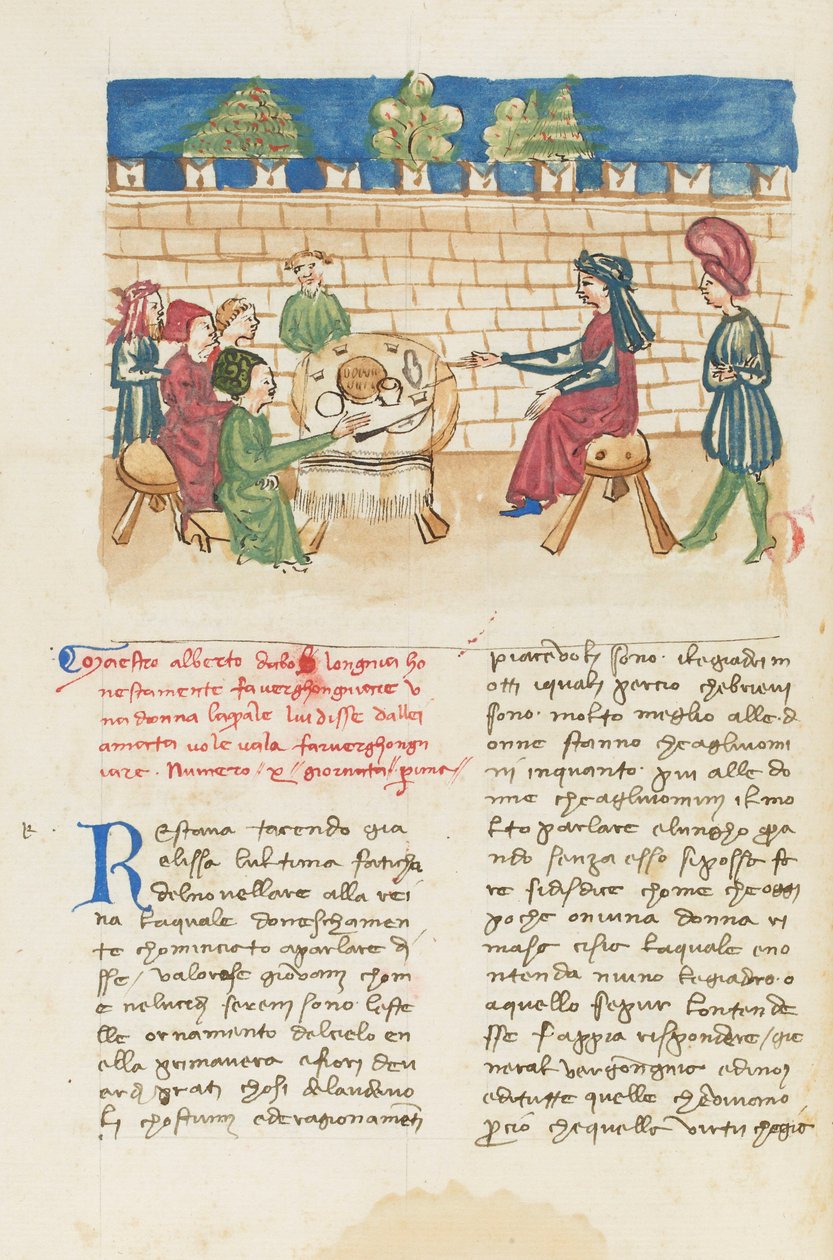 Maestro alberto dabo longnia ho
nestamente fa verghongniare v
na donna laquale lui disse dallei
amata vole vala far verghongn
iare. Numero x giornata prima
R
Restava tacendo gia
elissa lultima faticha
del novellare alla rei
na laquale doneschamen
te chominciato aparlare di
sse / valorose giovani chom
e nelucidi sereni sono leste
lle ornamento delcielo en
ella primavera efiori deu
erdi prati chosi delaudevo
li chostumi ederagionamenti
piacevoli sono ilegiadri m
otti iquali percio chebrievi
sono molto meglio alle d
onne stanno cheagliuomi
ni inquanto piu alle do
nne cheagliuomini ilmo
lto parlare elungho qua
ndo senza esso sipossa fa
re sidisdice chome cheoggi
poche oniuna donna ri
masa cisia laquale eno
ntenda niuno legiadro o
aquello sepur lontende
sse sappia rispondere / gie
neral vergongnia edinoi
editutte quelle chevivono
percio chequella virtu chegia